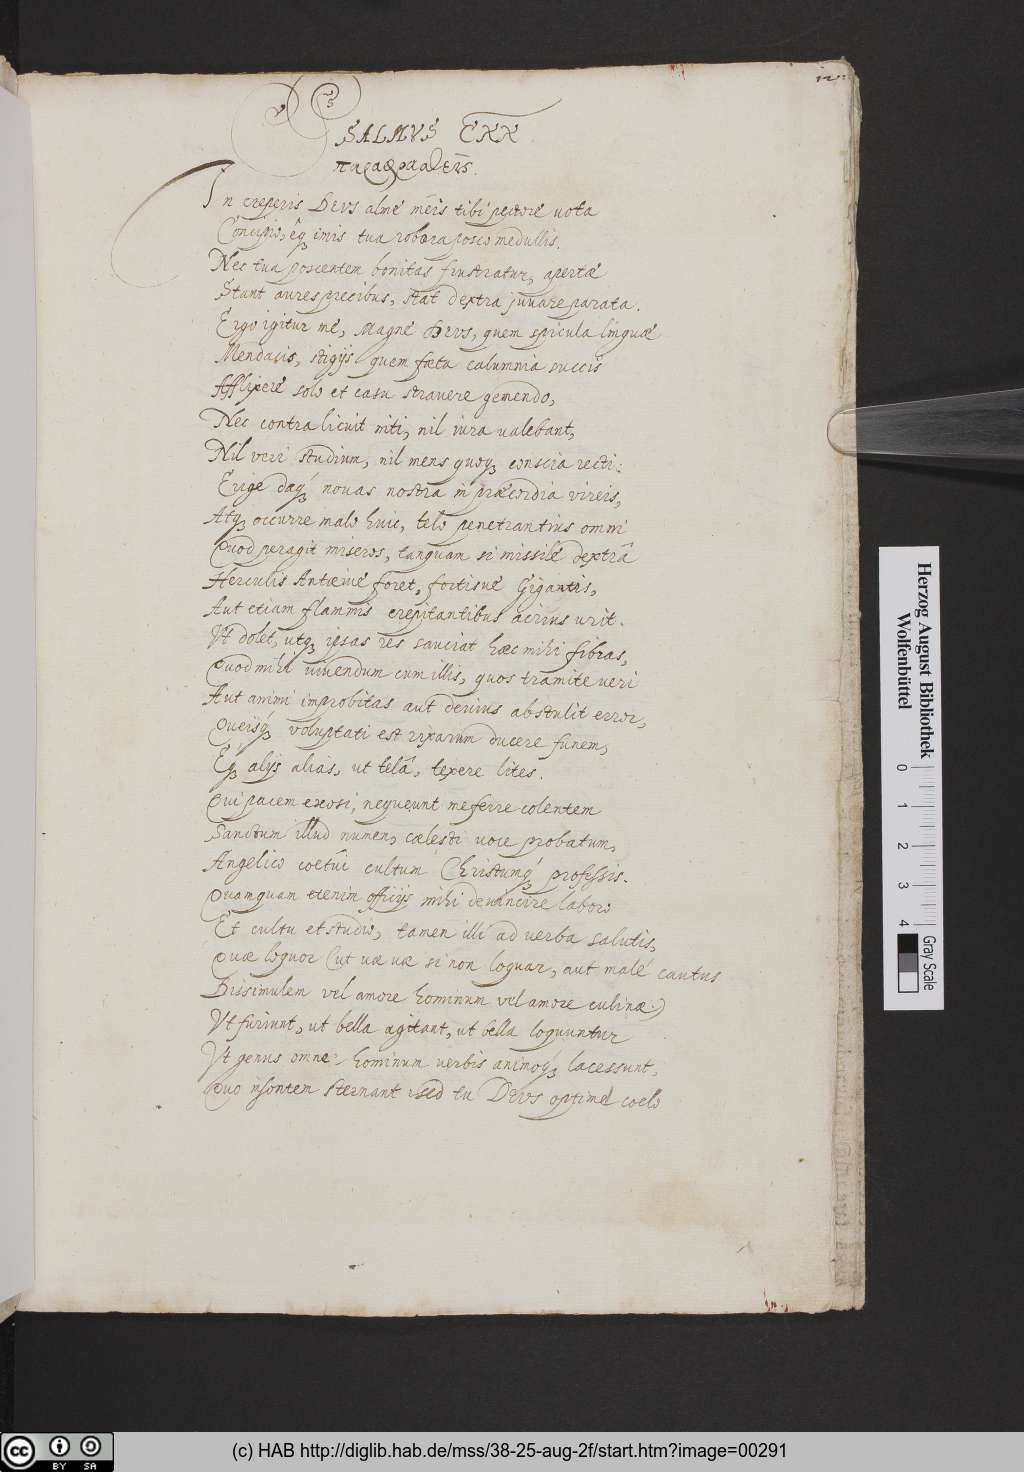 PSALMVS CXX
παραφρασθεὶς.
In creperis DEVS almé meis tibi pectoré vota
Concipio, éq; imis tua robora posco medullis.
Nec tua poscentem bonitas frustratur, apertæ
Stant aures precibus, stat dextra juvare parata.
Ergo igitur mé, Magné DEVS, quem spicula linguæ
Mendacis, stigijs quem fœta calumnia succis
Afflixeré solo et casu stravere gemendo,
Nec contra licuit niti, nil iura valebant,
Nil veri studium, nil mens quoq; conscia recti:
Erige daq; novas nostra in præcordia vireis,
Atq; occurre malo huic, telo penetrantius omni
Quod peragit miseros, tanquam si missilé dextrâ
Herculis Antæivé foret, fortisvé Gigantis,
Aut etiam flammis crepitantibus acrius vrit.
Vt dolet, utq; ipsas res sauciat hæc mihi fibras,
Quod mihi vivendum cum illis, quos tramite veri
Aut animi improbitas aut devius abstulit error,
Queisq; voluptati est rixarum ducere funem,
Eq; alijs alias, ut telâ, texere lites.
Qui pacem exosi, nequeunt me ferre colentem
Sanctum illud numen, cælesti voce probatum,
Angelico coetûi cultum Christumq; professis.
Quamquam etenim officijs mihi devincire laboro
Et cultu et studio, tamen illi ad verba salutis,
Quæ loquor (ut væ væ si non loquar, aut malé cautus
Dissimulem vel amore hominum vel amore culinæ)
Vt furiunt, ut bella agitant, ut bella loquuntur
Vt genus omne hominum verbis animoq; lacessunt,
Quo insontem sternant: sed tu DEVS optimé coelo
Herzog August Bibliothek
Wolfenbüttel
0 1 2 3 4
Gray Scale
cc BY SA
(c) HAB http://diglib.hab.de/mss/38-25-aug-2f/start.htm?image=00291